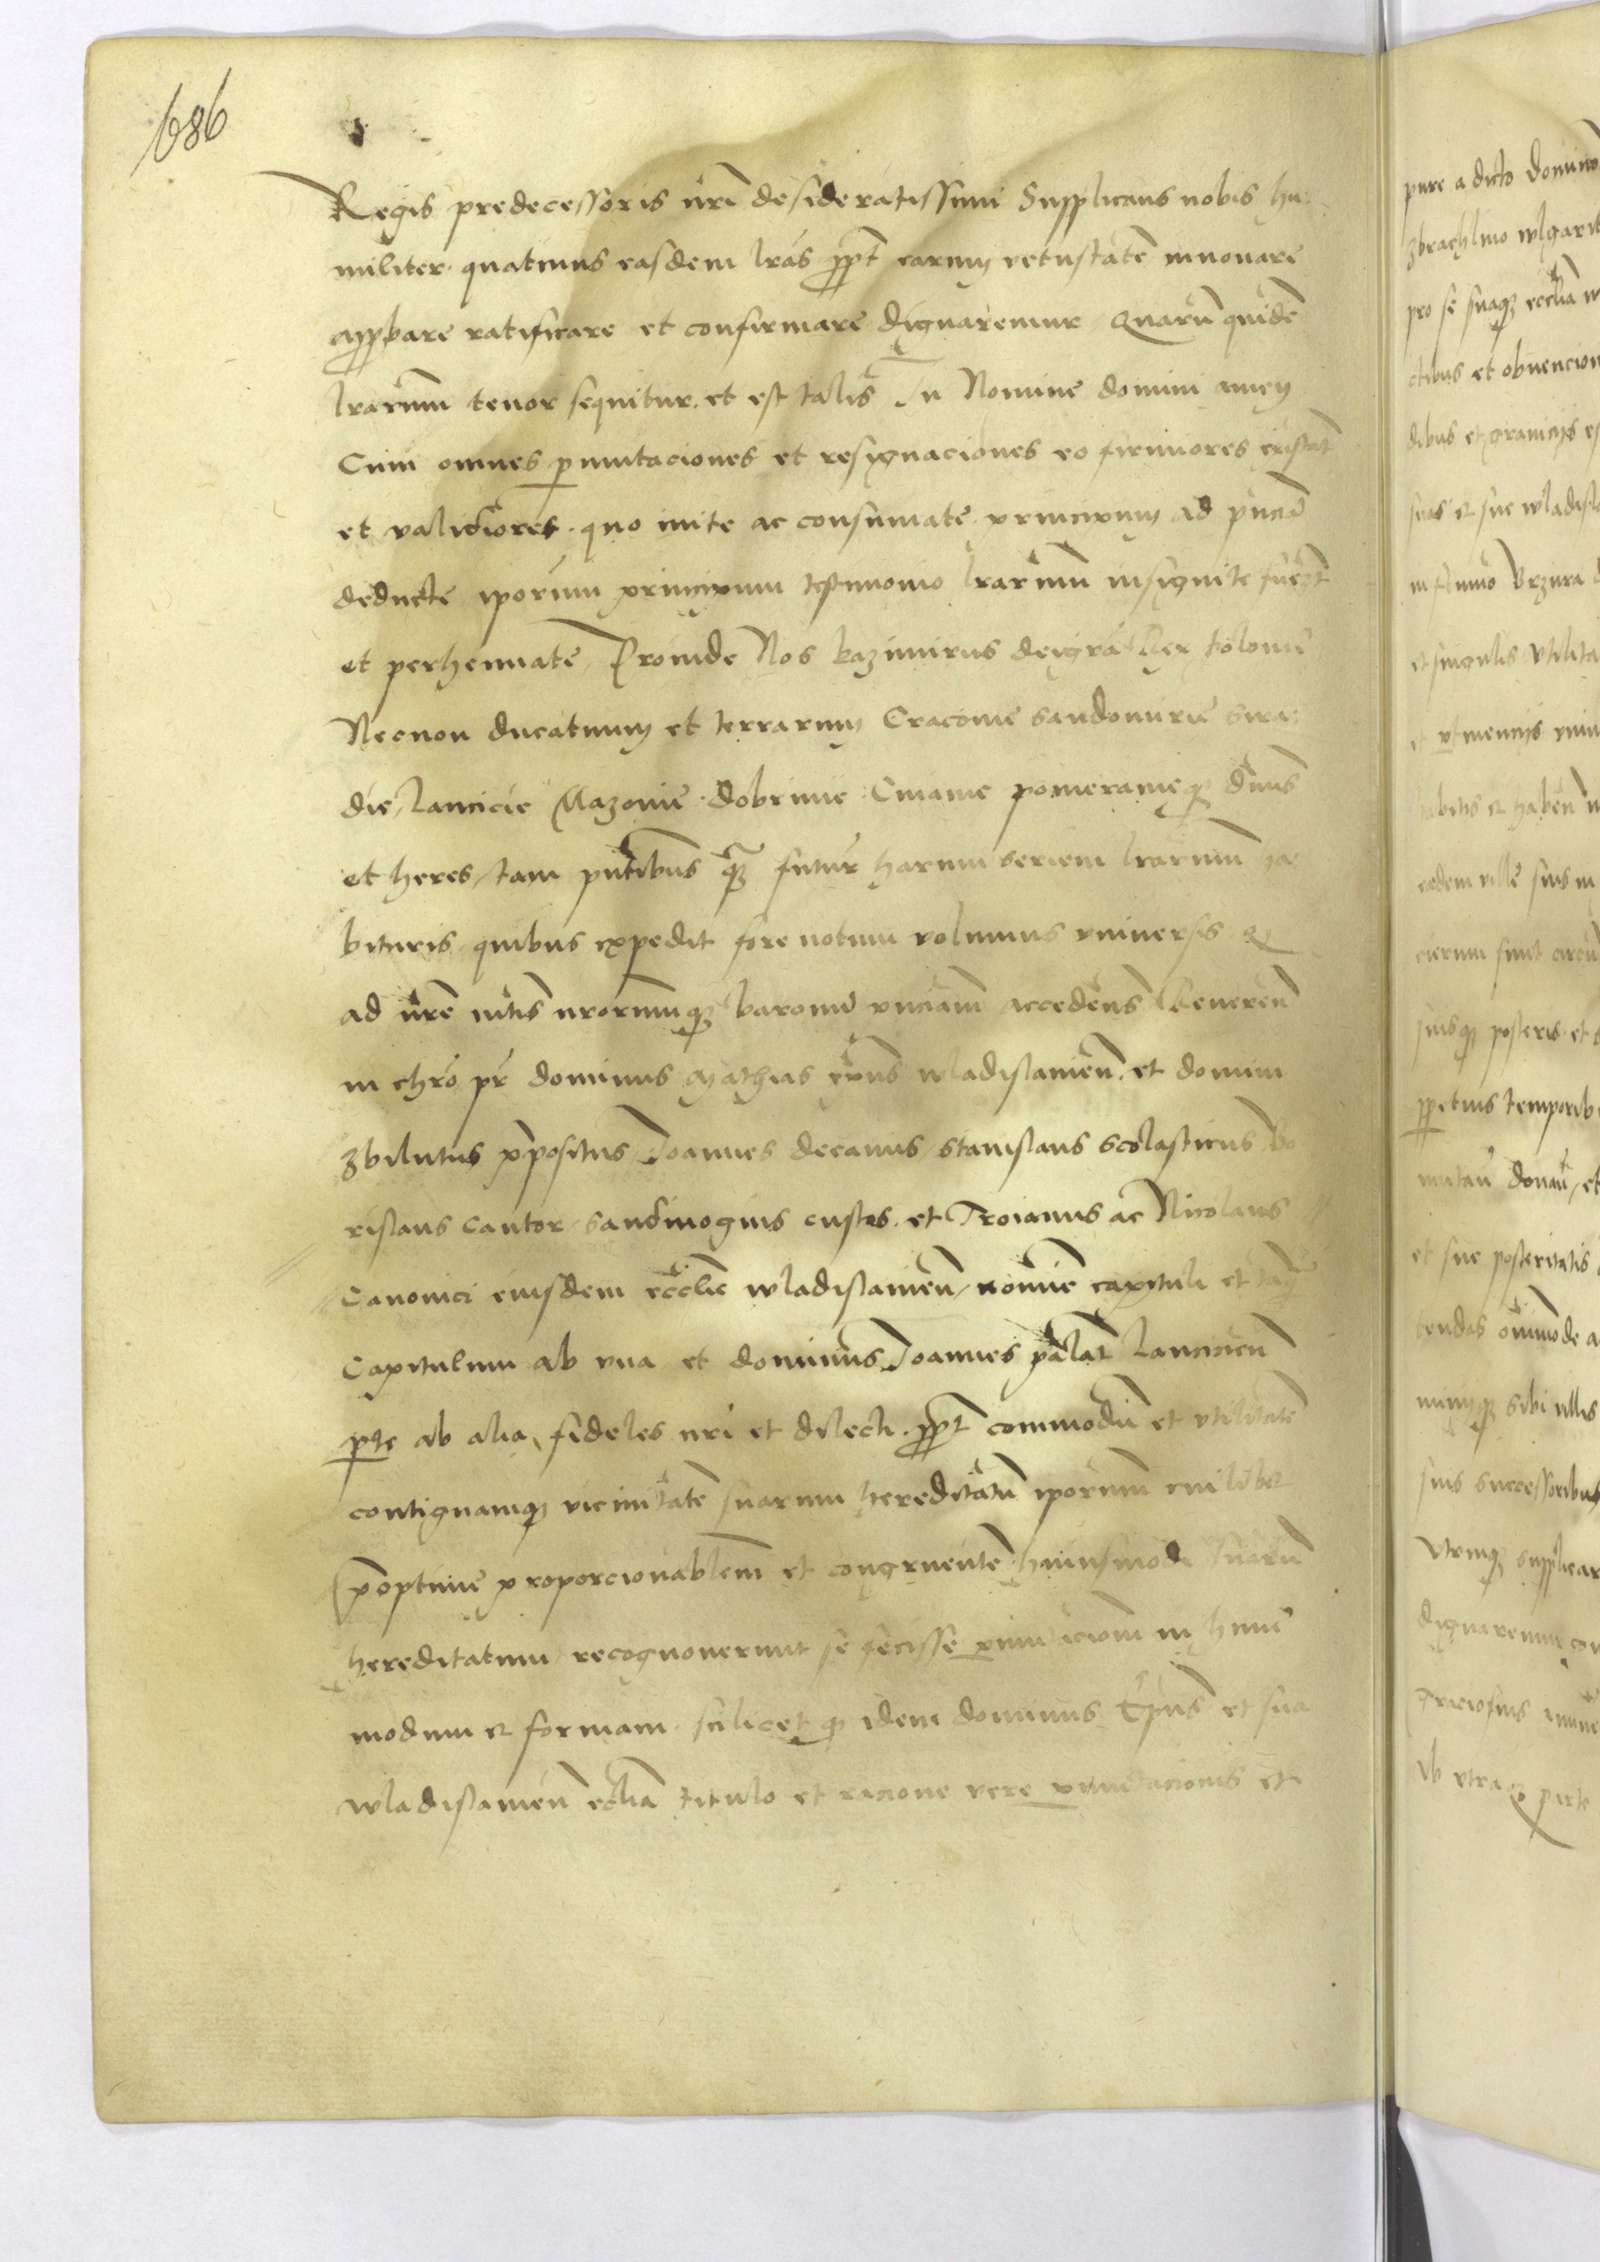 686
Regis predecessoris nri desideratissimi Supplicans nobis hu-
militer quatinus easdem lras ppt earum vetustate innovare
approbare ratificare et confirmare dignaremur Quaru quide
lrarum tenor sequitur et est talis In Nomine domini amen
Cum omnes pmutaciones et resignaciones eo firmiores existat
et validiores quo inite ac consumate principum ad pncia
deducte iporum principum testimonio lrarum insignite fuerit
et perhennate Proinde Nos kazimirus dei gra Rex Polonie
Necnon ducatuum et terrarum Cracovie Sandomirie Sira-
die Lancicie Mazovie dobrinie Cuiavie pomeranieq dnus
et heres tam pntibus q futur harum seriem lrarum ha-
bituris quibus expedit fore notum volumus universis Q
ad nre nrorumq baronu pnciam accedens Reveren
in chro pr dominus Mathias epus wladislavien et domini
zbilutus ppositus Joannes decanus Stanislaus Scolasticus Bo-
rislaus Cantor Sandivogius custos et Troianus ac Nicolaus
Canonici eiusdem ecclie wladislavien nomine capituli et taq
Capitulum ab una et dominus Joannes palat Lancicien
pte ab alia fideles nri et dilecti ppt commodu et utilitate
contiguamq vicinitate suarum hereditatu iporum cuilibet
optime proporcionablem et congruente huiusmodi suaru
hereditatum recognoverunt se fecisse pmutaciom in hunc
modum et formam scilicet q idem dominus Epus et sua
wladislavien ecclia titulo et racione vere pmutacionis et
pure a dicto domino
pro se suaq ecclia
ctibus et obvencion
dibus et graniciis
et singulis utilita
eedem ville suis in
suisq posteris et
ppetuis temporib
donav et
et sue posteritatis
tendas
sibi illis
suis successoribus
utrinq supplicar
dignaremur
ab utraq parte